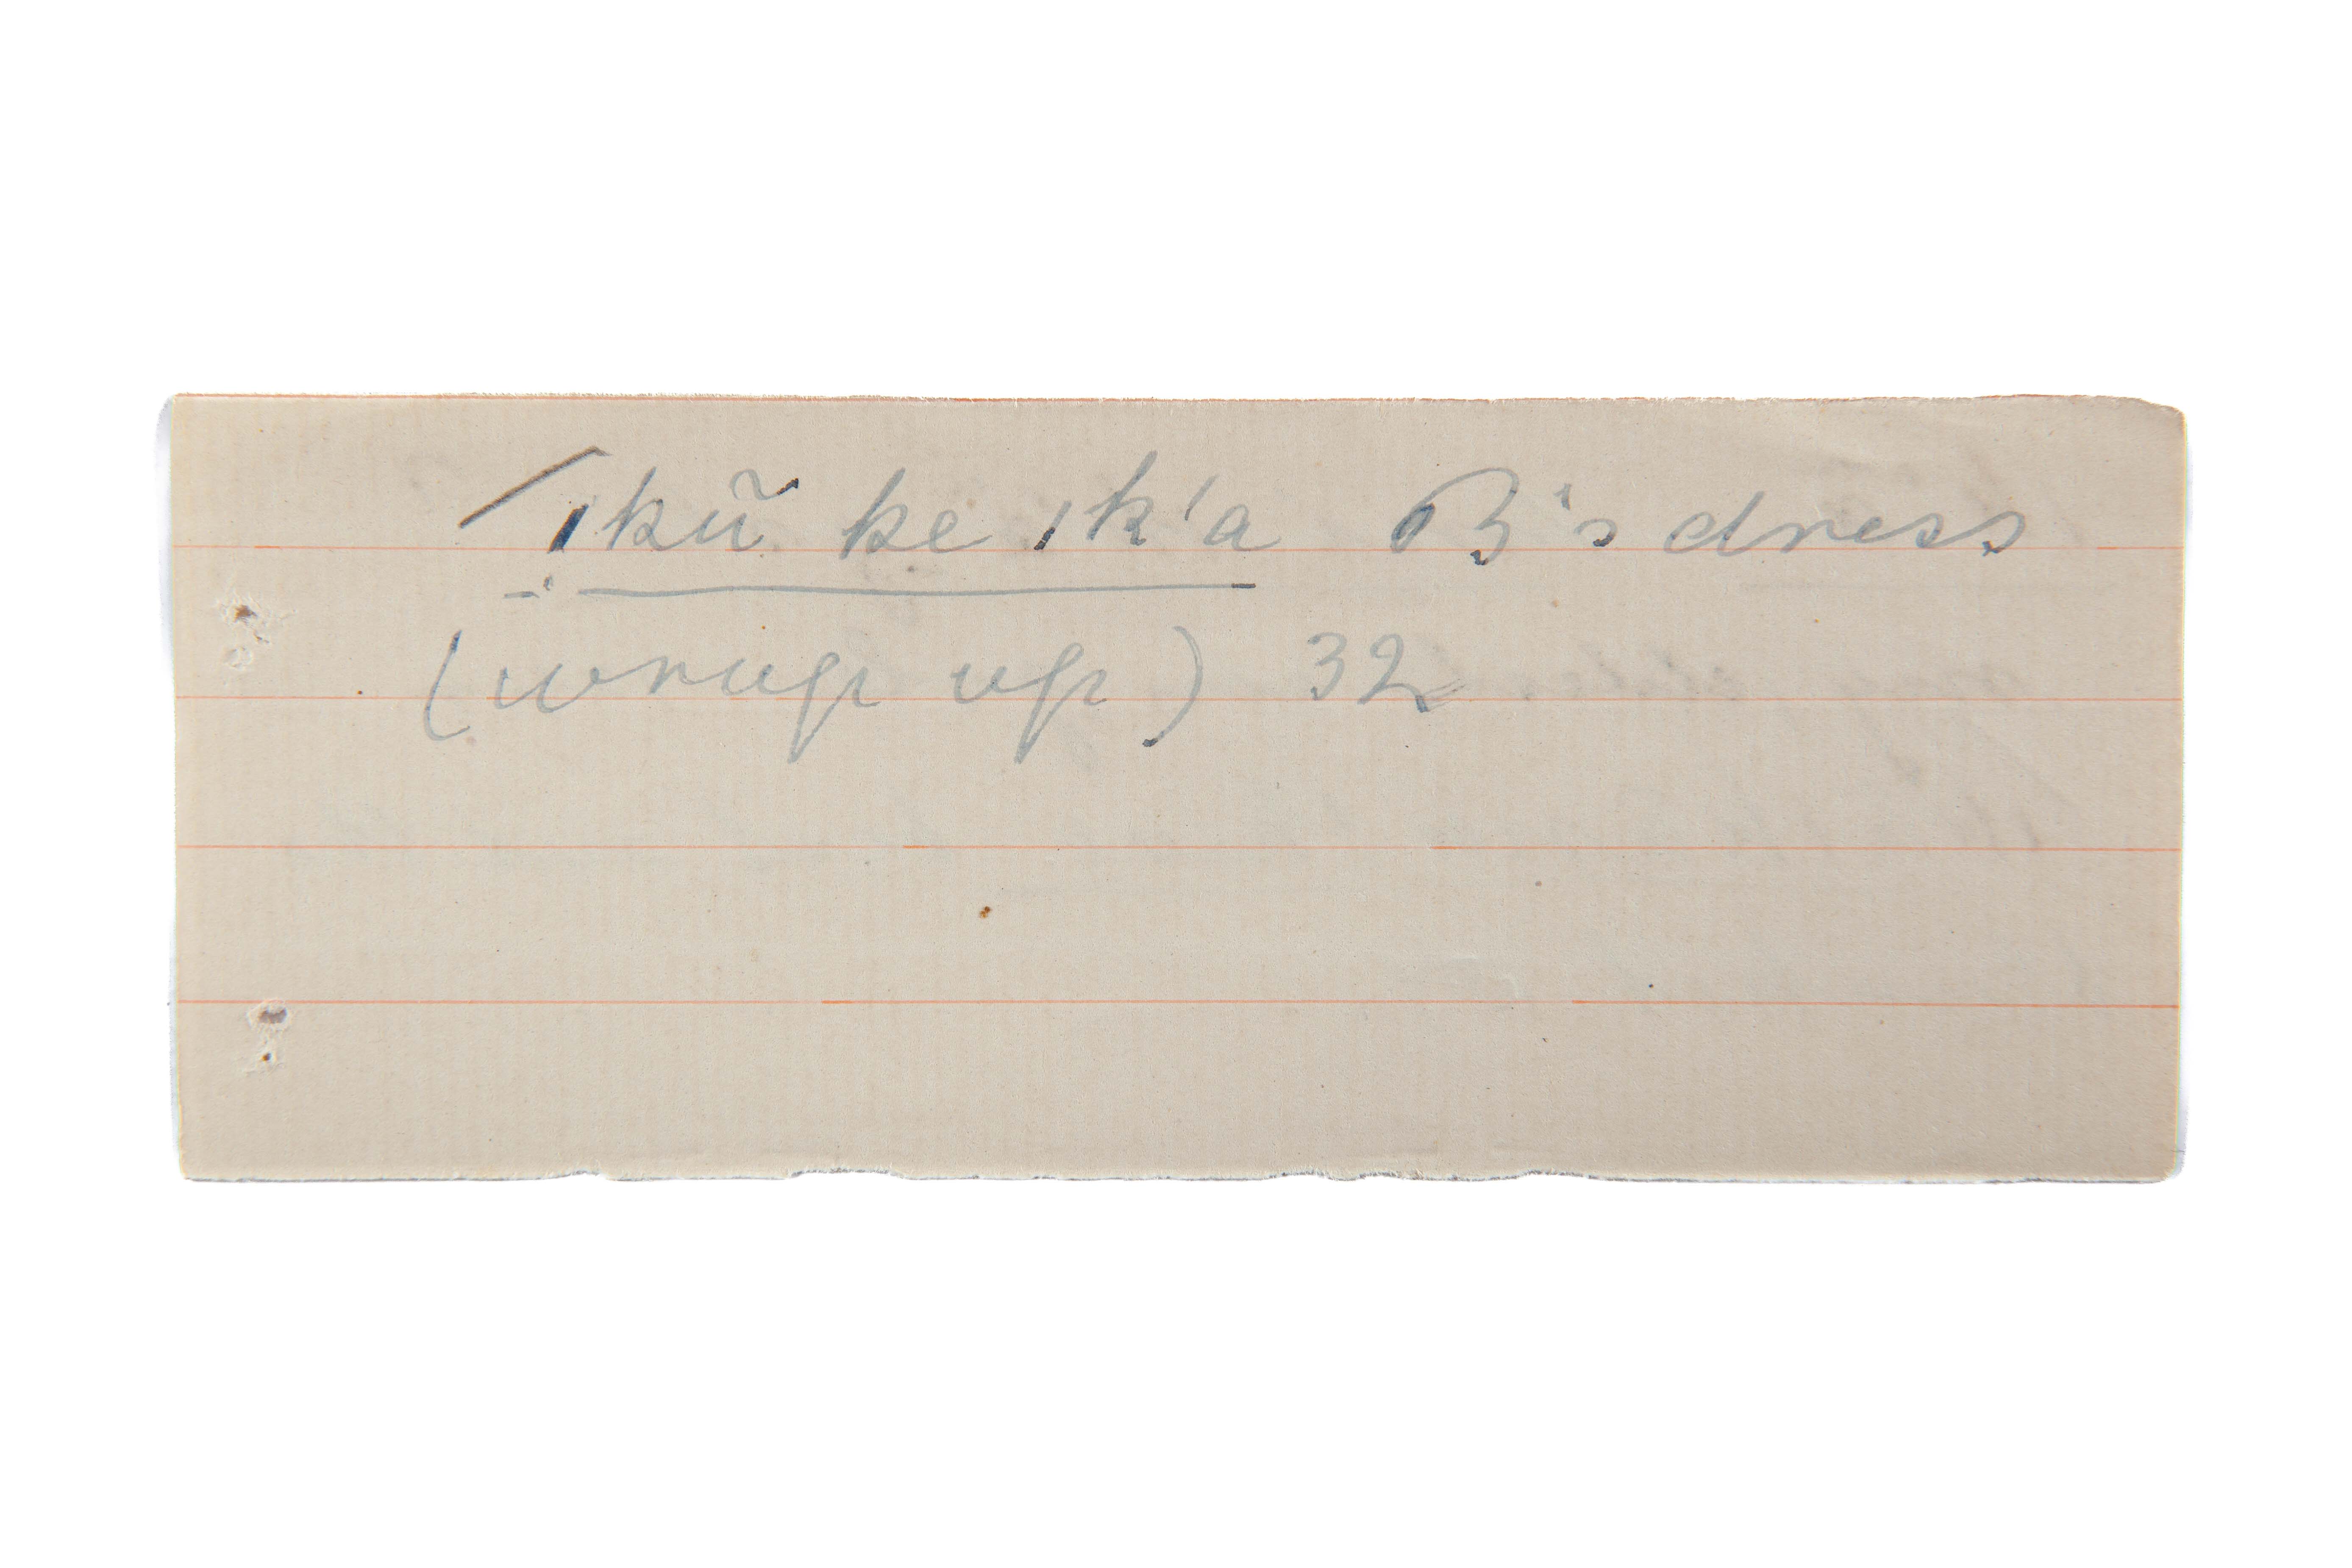 /ıkŭ ke ık'a B's dress
(wrap up) 32